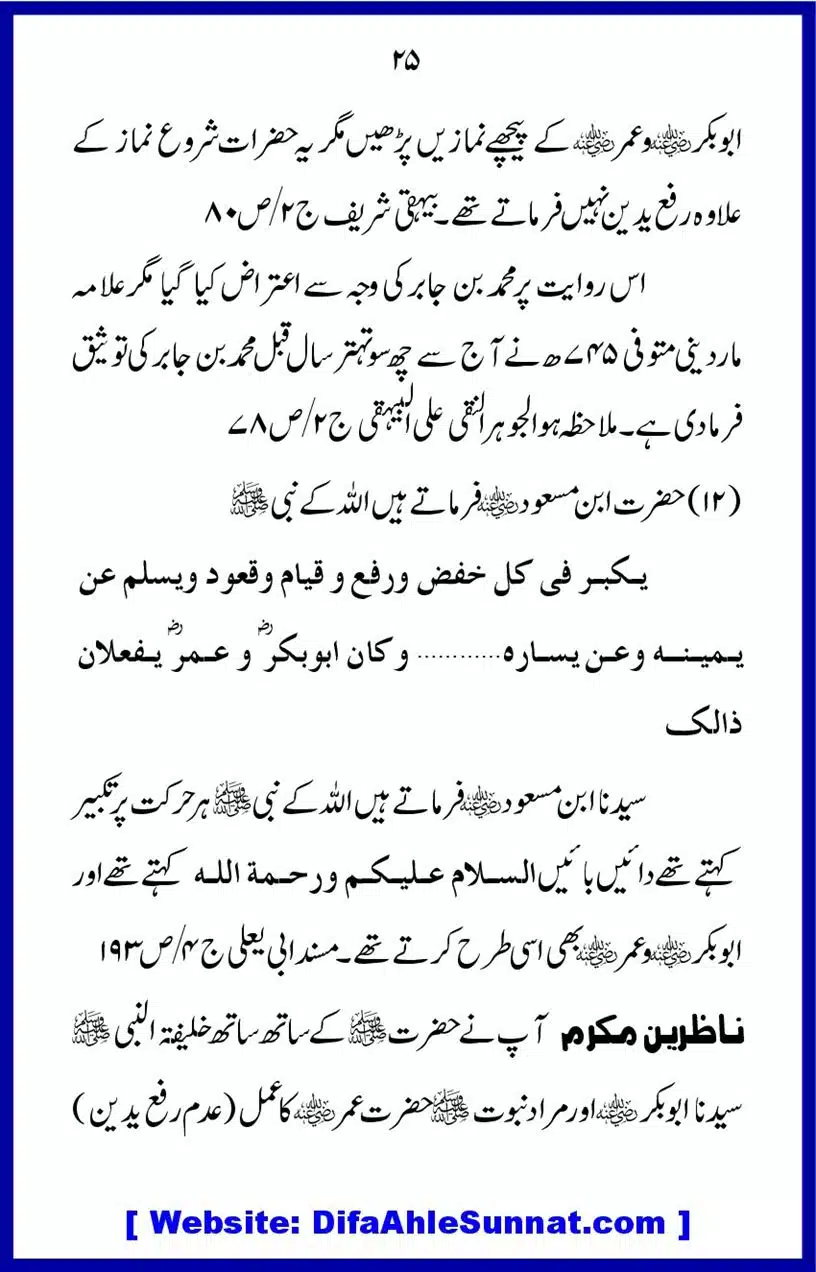 ۲۵
ابوبکر رضی اللہ عنہ وعمر رضی اللہ عنہ کے پیچھے نمازیں پڑھیں مگر یہ حضرات شروع نماز کے
علاوہ رفع یدین نہیں فرماتے تھے۔ بیہقی شریف ج۲/ص۸۰
اس روایت پر محمد بن جابر کی وجہ سے اعتراض کیا گیا مگر علامہ
ماردینی متوفی ۷۴۵ھ نے آج سے چھ سو تہتر سال قبل محمد بن جابر کی توثیق
فرمادی ہے۔ ملاحظہ ہو الجوہر النقی علی البیہقی ج۲/ص۷۸
(۱۲) حضرت ابن مسعود رضی اللہ عنہ فرماتے ہیں اللہ کے نبی ﷺ
یکبر فی کل خفض ورفع و قیام وقعود ویسلم عن
یمینہ وعن یسارہ............ وکان ابوبکرؓ و عمرؓ یفعلان
ذالک
سیدنا ابن مسعود رضی اللہ عنہ فرماتے ہیں اللہ کے نبی ﷺ ہر حرکت پر تکبیر
کہتے تھے دائیں بائیں السلام علیکم ورحمة اللہ کہتے تھے اور
ابوبکر رضی اللہ عنہ وعمر رضی اللہ عنہ بھی اسی طرح کرتے تھے۔ مسند ابی یعلی ج۴/ص۱۹۳
ناظرین مکرم آپ نے حضرت ﷺ کے ساتھ ساتھ خلیفۃ النبی ﷺ
سیدنا ابوبکر رضی اللہ عنہ اور مراد نبوت ﷺ حضرت عمر رضی اللہ عنہ کا عمل (عدم رفع یدین)
[ Website: DifaAhleSunnat.com ]